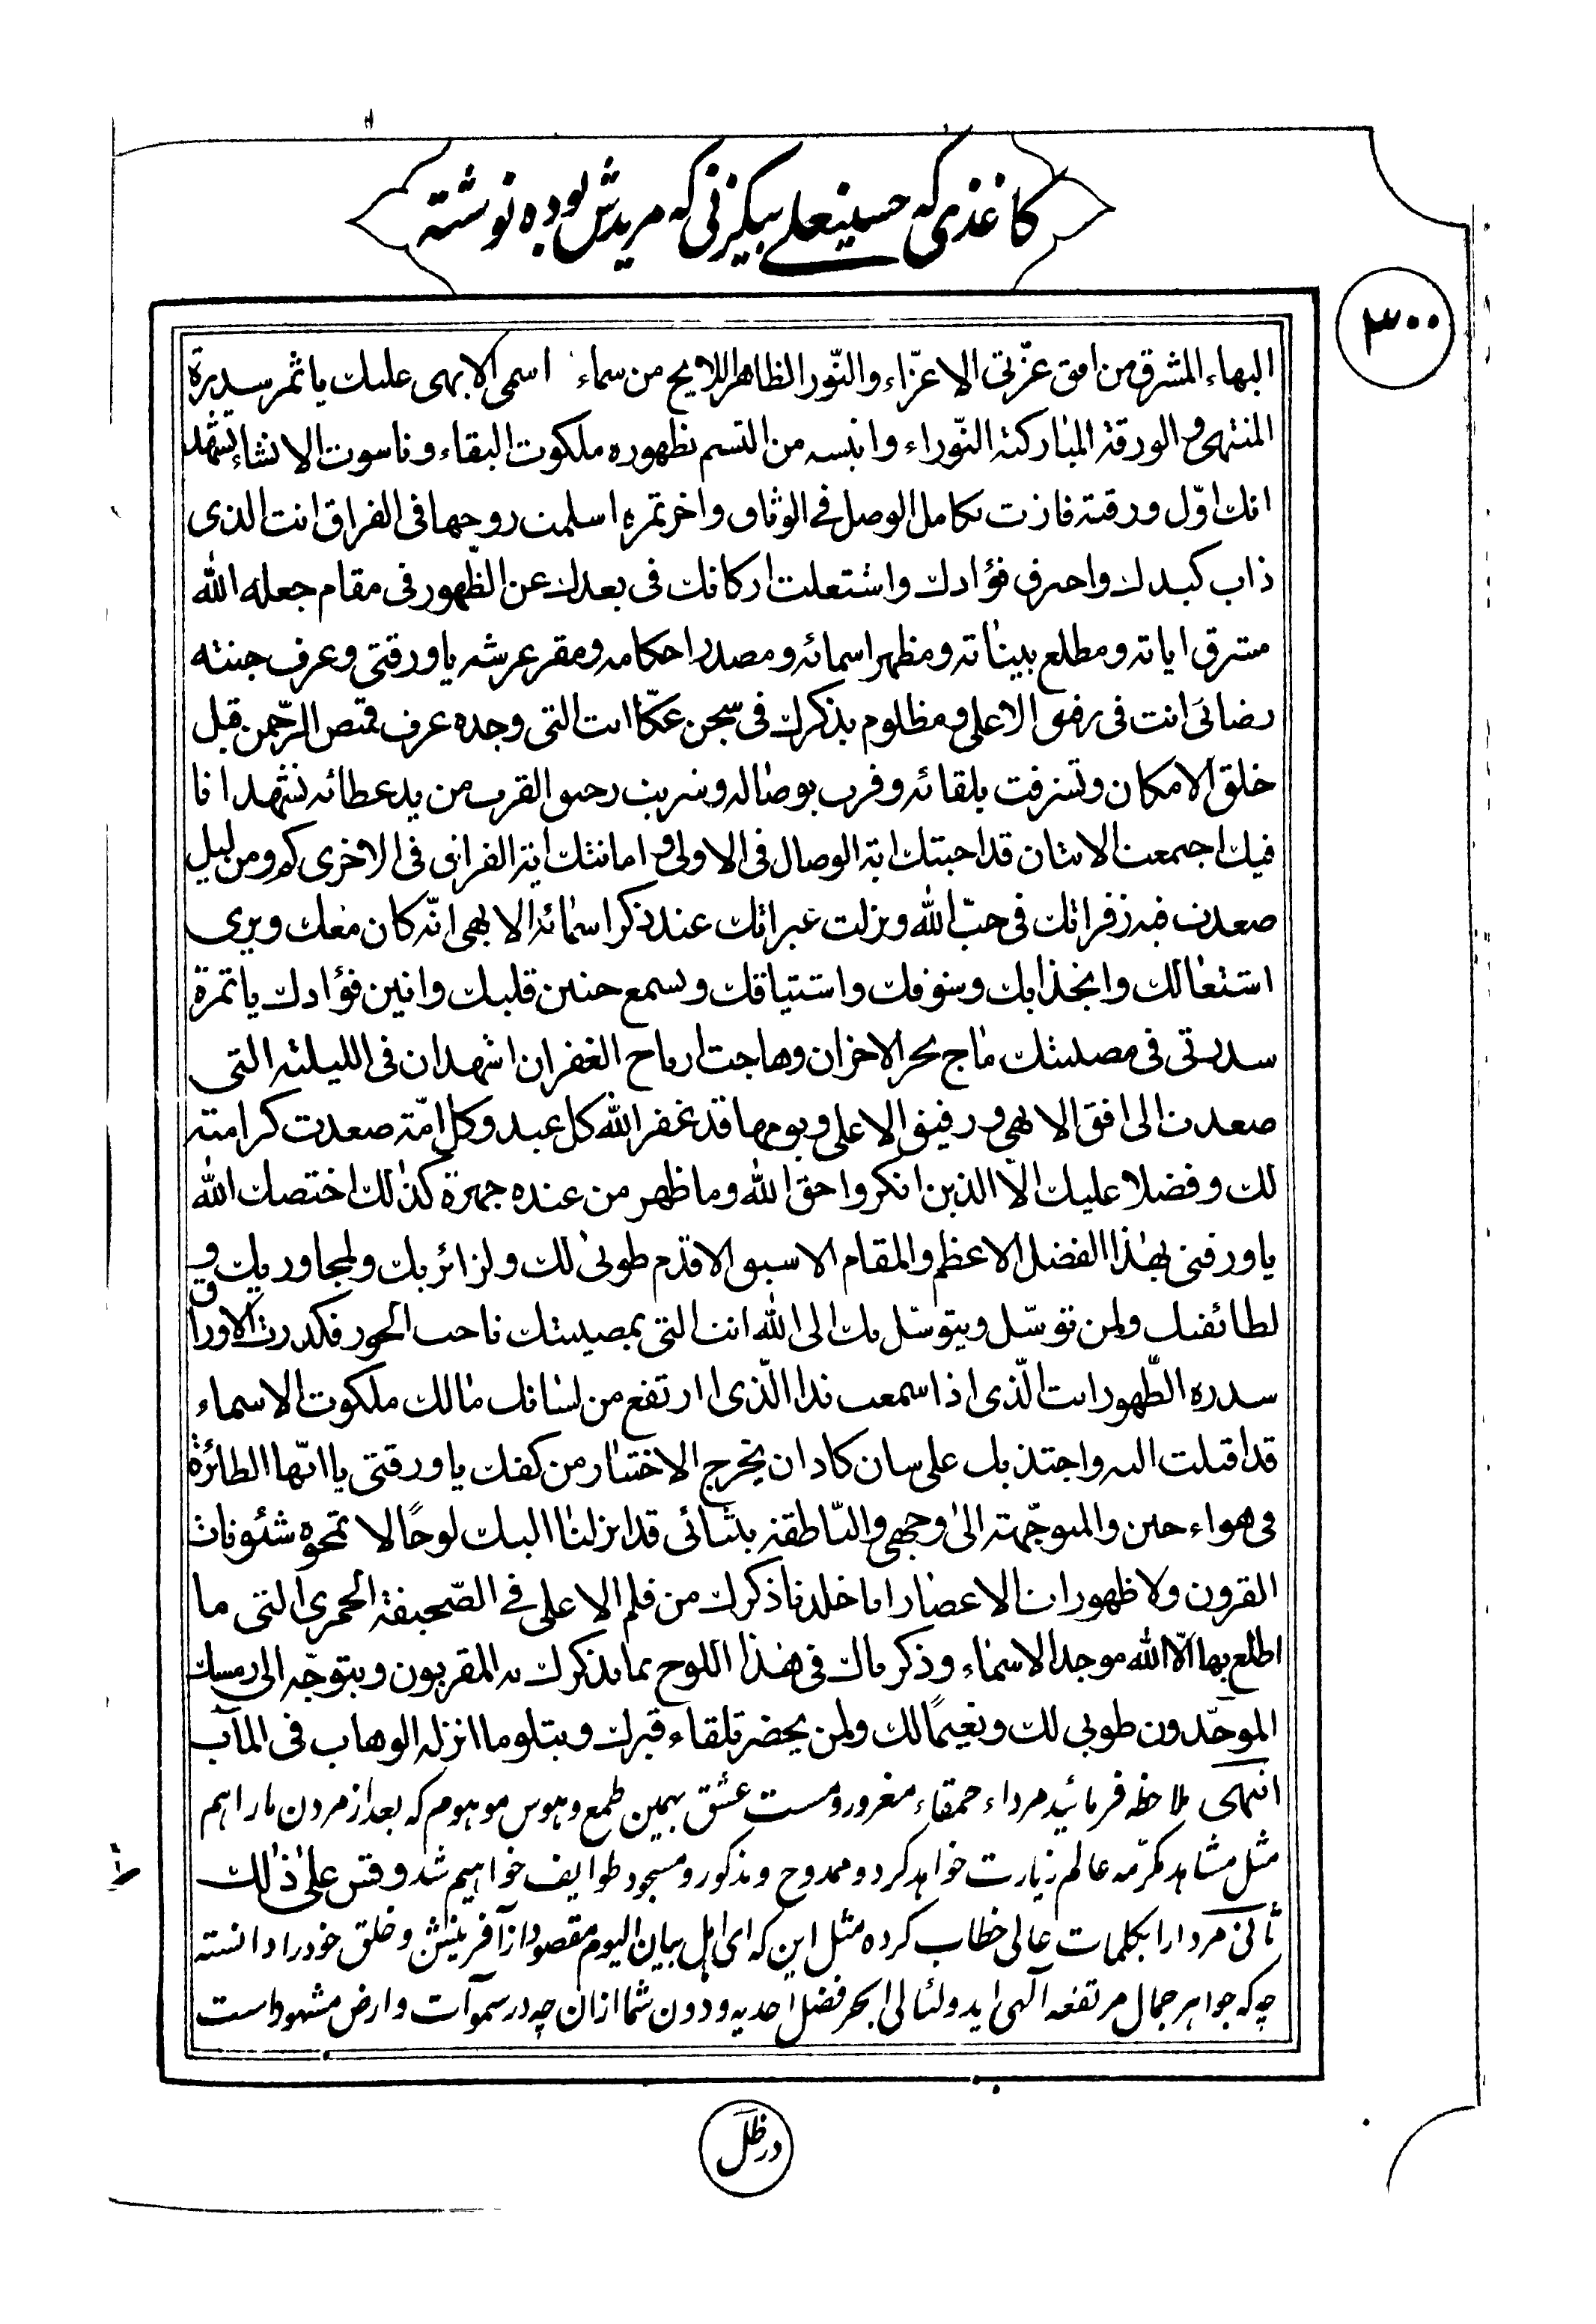 کاغذی که حسینعلی بیکزنی که مریدش بوده نوشته
۳۰۰
البهاء المشرق من افق عزّتی الاعزّاء والنّور الظاهر اللایح من سماء اسمی الابهی علیك یا ثمر سدرة
المنتهی و الورقة المبارکة النّوراء وانیسه من التسم بظهوره ملکوت البقاء وناسوت الانشاء یشهد
انك اوّل ورقته فازت بکامل الوصل فی الوثاق واخر ثمره اسلمت روحها فی الفراق انت الذی
ذاب کبدك واحترق فؤادك واشتعلت ارکانك فی بعدك عن الظّهور فی مقام جعله الله
مشرق ایاته ومطلع بیناته ومظهر اسمائه ومصدر احکامه ومقر عرشه یا ورقتی وعرف جنته
رضائی انت فی رفیق الاعلی ومظلوم بذکرك فی سجن عکّا انت التی وجده عرف قمیص الرّحمن قبل
خلق الامکان وتشرفت بلقائه وفزت بوصاله وشربت رحیق القرب من ید عطائه نشهد انا
فیك اجتمعت الایتان قد احیتك ایة الوصال فی الاولی و اماتتك ایة الفراق فی الاخری کم ومن لیل
صعدت فیه زفراتك فی حبّ الله ونزلت عبراتك عند ذکر اسمائه الابهی انّه کان معك ویری
اشتعالك وانجذابك وشوقك واشتیاقك ویسمع حنین قلبك وانین فؤادك یا ثمرة
سدرتی فی مصیبتك ماج بحر الاحزان وهاجت اریاح الغفران اشهد ان فی اللیلته التی
صعدت الی افق الابهی و رفیق الاعلی ویومها قد غفر الله کل عبد وکل امّة صعدت کرامته
لك وفضلا علیك الاّ الذین انکروا حق الله وما ظهر من عنده جهرة کذلك اختصك الله
یا ورقتی بهذا الفضل الاعظم والمقام الاسبق الاقدم طوبی لك ولزائریك ولمجاوریك و
لطائفیك ولمن توسّل ویتوسّل بك الی الله انت التی بمصیبتك ناحت الحور فکدرت الاوراق
سدره الظّهور انت الّذی اذا سمعت ندا الّذی ارتفع من لسانك مالك ملکوت الاسماء
قد اقبلت الیه واجتذبك علی سان کاد ان یخرج الاختیار من کفك یا ورقتی یا ایّها الطائرة
فی هواء حین والمتوجّهته الی وجهی والنّاطقة بثنائی قد انزلنا الیك لوحًا لا تمحوه شئونات
القرون ولا ظهورات الاعصار انا خلدنا ذکرك من قلم الاعلی فی الصّحیفة الحمری التی ما
اطلع بها الاّ الله موجد الاسماء وذکرناك فی هذا اللوح بما یذکرك به المقربون ویتوجّه الی رمسك
الموحّدون طوبی لك ونعیمًا لك ولمن یحضر تلقاء قبرك ویتلو ما انزله الوهاب فی المآب
انتهی ملاحظه فرمائید مرداء حمقاء مغرور ومست عشق بهمین طمع وهوس موهوم که بعد از مردن ما را هم
مثل مشاهد مکرّمه عالم زیارت خواهد کرد وممدوح ومذکور ومسجود طوایف خواهیم شد وقس علی ذلك
ثانی مردار ابکلمات عالی خطاب کرده مثل این که ای اهل بیان الیوم مقصود از آفرینش وخلق خود را دانسته
چه که جواهر جمال مرتفعه آلهی اید ولئالی ابحر فضل احدیه ودون شما ازان چه در سموآت وارض مشهود است
در ظل